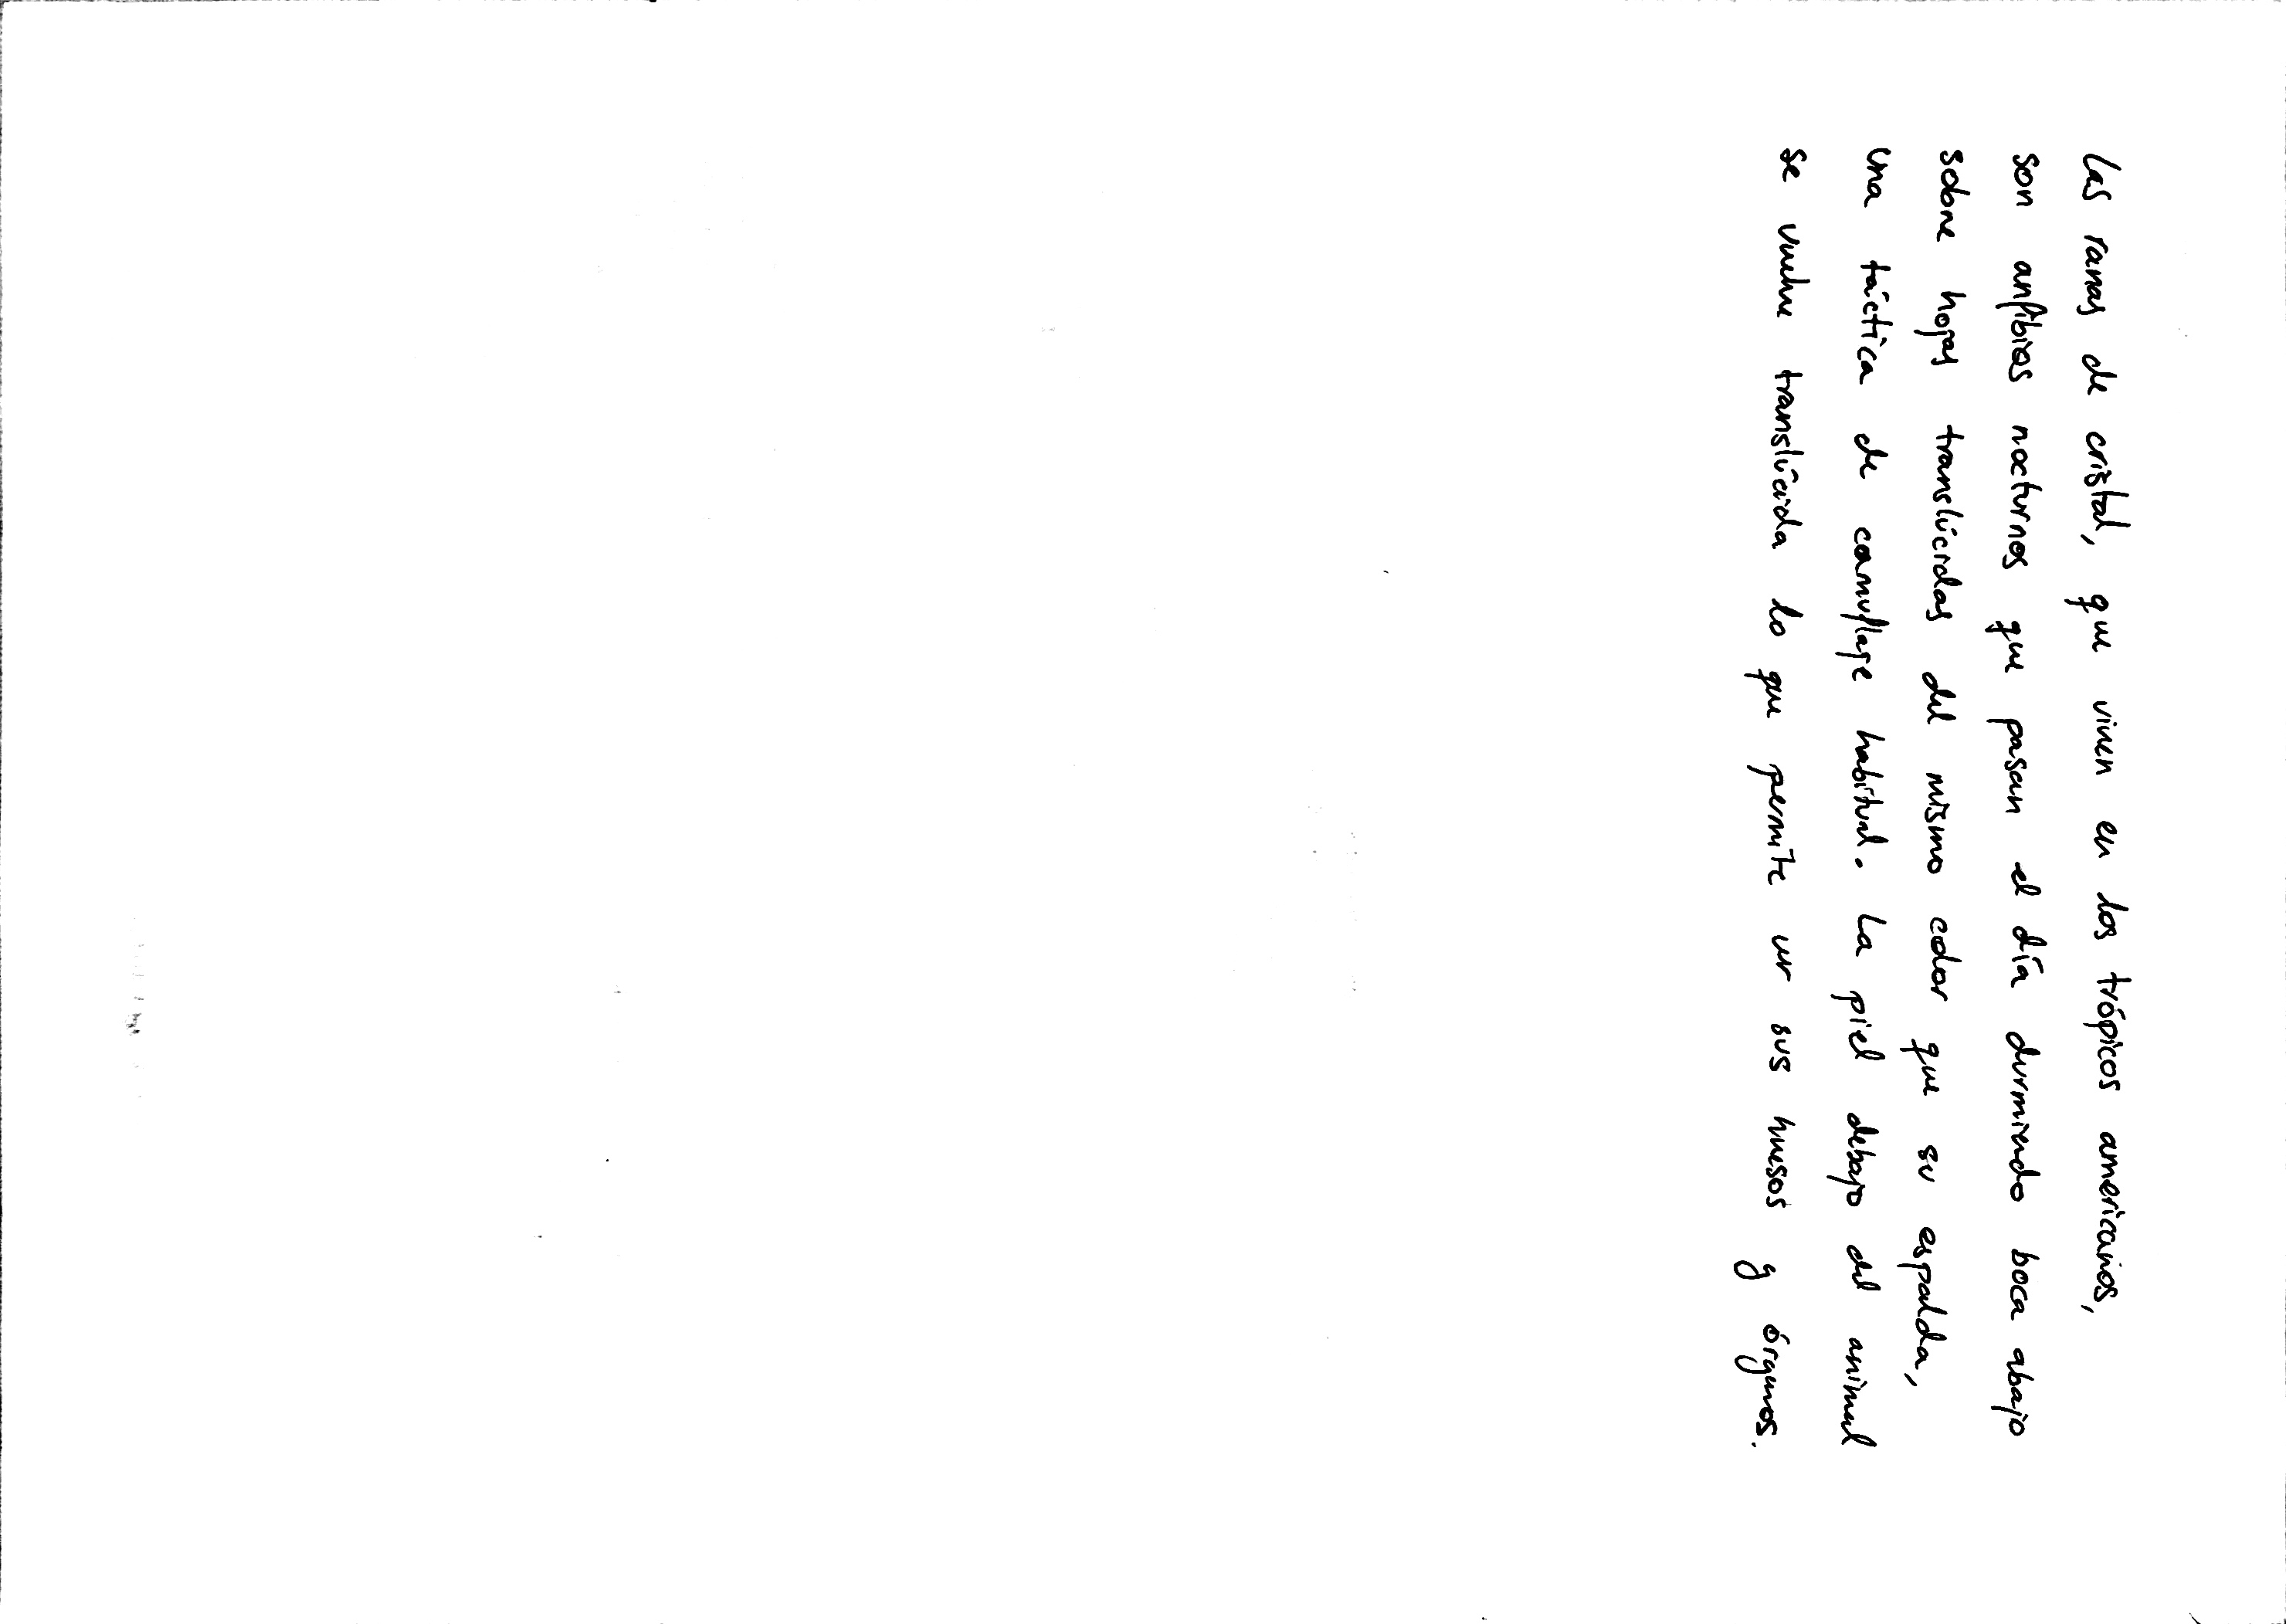 Las ranas de cristal, que viven en los trópicos americanos,
son anfibios nocturnos que pasan el día durmiendo boca abajo
sobre hojas translúcidas del mismo color que su espalda,
una táctica de camuflaje habitual. La piel debajo del animal
se vuelve translúcida lo que permite ver sus huesos y órganos.